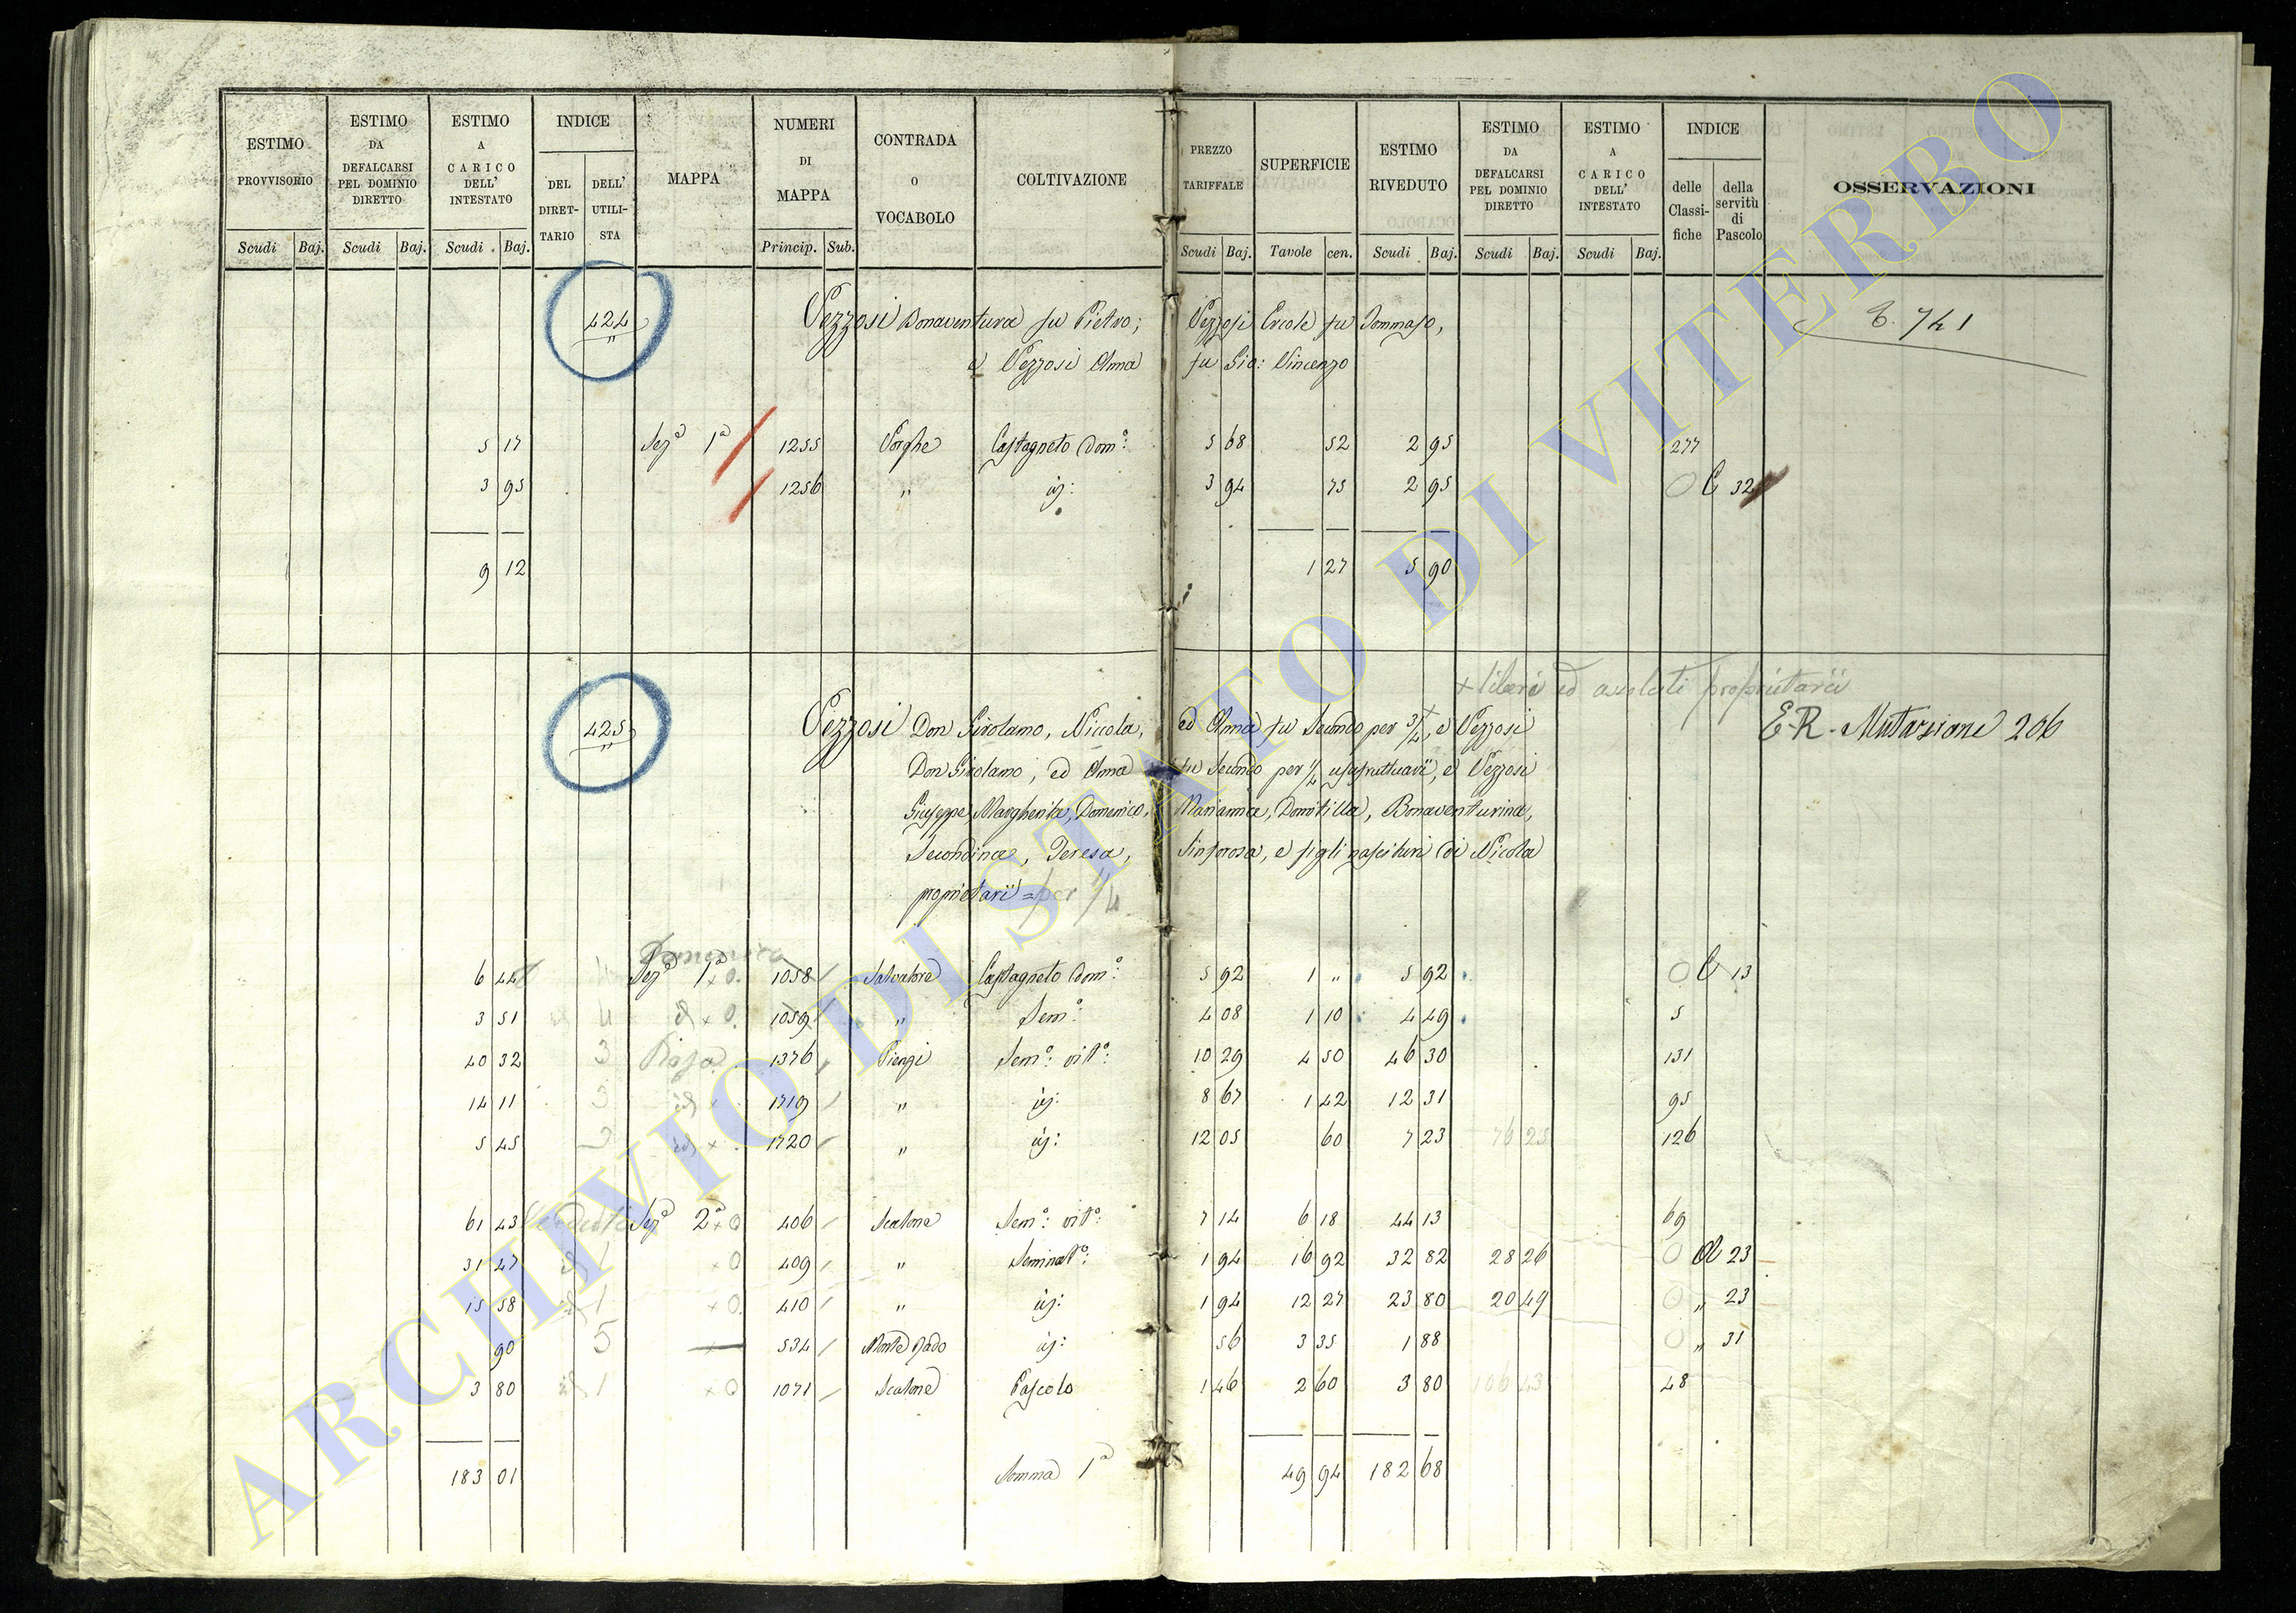 ESTIMO PROVVISORIO | ESTIMO DA DEFALCARSI PEL DOMINIO DIRETTO | ESTIMO A CARICO DELL' INTESTATO | INDICE | MAPPA | NUMERI DI MAPPA | CONTRADA O VOCABOLO | COLTIVAZIONE | PREZZO TARIFFALE | SUPERFICIE | ESTIMO RIVEDUTO | ESTIMO DA DEFALCARSI PEL DOMINIO DIRETTO | ESTIMO A CARICO DELL' INTESTATO | INDICE | OSSERVAZIONI
DEL DIRETTARIO | DELL' UTILISTA | delle Classifiche | della servitù di Pascolo
Scudi | Baj. | Scudi | Baj. | Scudi | Baj. | Princip. | Sub. | Scudi | Baj. | Tavole | cen. | Scudi | Baj. | Scudi | Baj. | Scudi | Baj.
424 Vezzosi Bonaventura fu Pietro; Vezzosi Ercole fu Tommaso, 741
e Vezzosi Anna fu Gio: Vincenzo
5 17 Sezᵉ 1ᵃ 1255 Castagneto Domº: 5 68 52 2 95 277
3 95 1256 " id: 3 94 75 2 95 0 C 32
9 12 1 27 5 90
+ liberi ed assoluti proprietarii
425 Vezzosi Don Girolamo, Niccola, ed Anna fu Secondo per 3/4, e Vezzosi E.R. Mutazione 206
Don Girolamo, ed Anna fu Secondo per 1/4 usufruttuarii, e Vezzosi
Giuseppe, Margherita, Domenica, Marianna, Domitilla, Bonaventurina,
Secondina, Teresa, Sinforosa, e figli nascituri di Nicola
proprietarii = per 1/4
Domenica
6 44 Sezᵉ 1ᵃ x 0. 1058 Salvatore Castagneto Domº: 5 92 1 " 5 92 0 C 13
3 51 id 4 id x 0. 1059 " Semº: 4 08 1 10 4 49 5
40 32 3 1376 Piengi Semº: vitº: 10 29 4 50 46 30 131
14 11 3 id x 1719 " id: 8 67 1 42 12 31 95
5 45 3 id x 1720 " id: 12 05 60 7 23 76 25 126
61 43 Sezᵉ 2ᵃ x 0 406 Scalone Semº: vitº: 7 14 6 18 44 13 69
31 47 id 1 x 0 409 " Seminatº: 1 94 16 92 32 82 28 26 0 A 23
15 58 id 1 x 0. 410 " id: 1 94 12 27 23 80 20 49 0 " 23
90 5 534 Monte Rado id: 56 3 35 1 88 0 " 31
3 80 id 1 x 0 1071 Scalone Pascolo 1 46 2 60 3 80 106 43 48
183 01 Somma 1ᵃ 49 94 182 68
ARCHIVIO DI STATO DI VITERBO